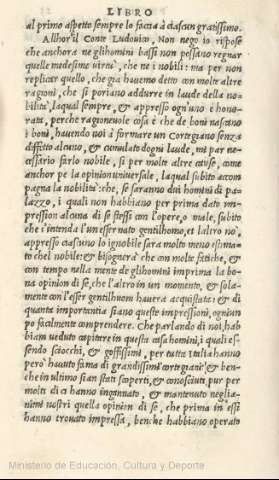 LIBRO
al primo aspetto sempre lo faccia à ciascun gratissimo.
Allhor il Conte Ludovico, Non nego io rispose
che anchora ne gli homini bassi non possano regnar
quelle medesime virtù, che ne i nobili: ma per non
replicar quello, che già havemo detto con molte altre
ragioni, che si poriano addurre in laude della no
bilità, laqual sempre, & appresso ogn'uno è hono
rata, perche ragionevole cosa è che de boni nascano
i boni, havendo noi à formare un Cortegiano senza
diffetto alcuno, & cumulato d'ogni laude, mi par ne-
cessario farlo nobile, si per molte altre cause, come
anchor pe la opinion universale, laqual subito accom
pagna la nobilità: che, se saranno dui homini di pa-
lazzo, i quali non habbiano per prima dato im
pression alcuna di se stessi con l'opere, o male, subito
che s'intenda l'un esser nato gentilhomo, et laltro nò:
appresso ciascuno lo ignobile sarà molto meno estima-
to chel nobile: & bisognerà che con molte fatiche, &
con tempo nella mente de gli homini imprima la bo-
na opinion di se, che l'altro in un momento, & sola-
mente con l'esser gentilhuom haverà acquistata: & di
quanta importantia siano queste impressioni, ogniun
po facilmente comprendere. Che parlando di noi, hab
biam veduto capitare in questa casa homini, i quali es-
sendo sciocchi, & goffissimi, per tutta italia hanno
però havuto fama di grandissimi cortegiani: & ben-
che in ultimo sian stati scoperti, & conosciuti, pur per
molti dì ci hanno ingannato, & mantenuto negli a-
nimi nostri quella opinion di se, che prima in essi
hanno trovato impressa, benche habbiano operato
Ministerio de Educación, Cultura y Deporte